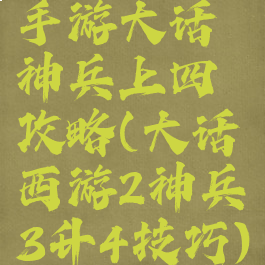 手游大话
神兵上四
攻略(大话
西游2神兵
3升4技巧)